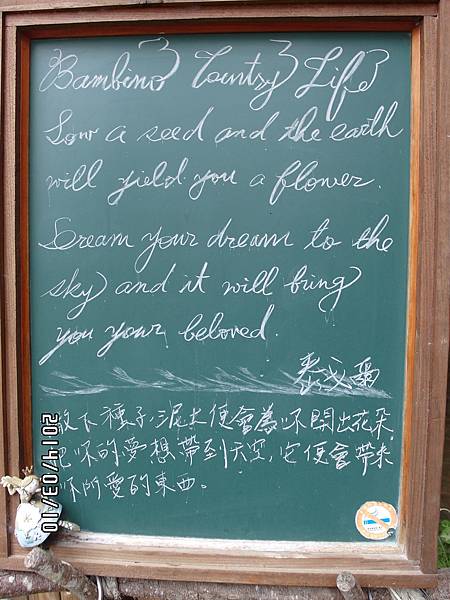 Bambino Country Life
Sow a seed and the earth
will yield you a flower.
Dream your dream to the
sky and it will bring
you your beloved.
泰戈爾
放下種子,泥土便會為你開出花朵,
把你的夢想帶到天空,它便會帶來
你所愛的東西。
2014/03/10